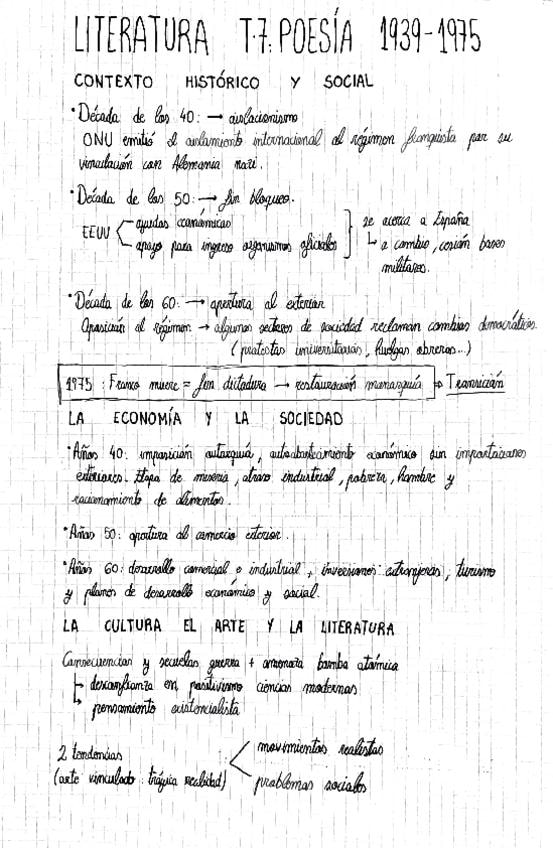 LITERATURA T.7: POESÍA 1939-1975
CONTEXTO HISTÓRICO Y SOCIAL
· Década de los 40: → aislacionismo
ONU emitió el aislamiento internacional al régimen franquista por su
vinculación con Alemania nazi.
· Década de los 50: → fin bloqueo.
EEUU ayudas económicas
apoyo para ingreso organismos oficiales
se acerca a España
↳ a cambio, cesión bases
militares.
· Década de los 60: → apertura al exterior
Oposición al régimen → algunos sectores de sociedad reclaman cambios democráticos.
(protestas universitarias, huelgas obreras...)
1975: Franco muere = fin dictadura → restauración monarquía ⇒ Transición
LA ECONOMÍA Y LA SOCIEDAD
· Años 40: imposición autarquía, autoabastecimiento económico sin importaciones
exteriores. Etapa de miseria, atraso industrial, pobreza, hambre y
racionamiento de alimentos.
· Años 50: apertura al comercio exterior.
· Años 60: desarrollo comercial e industrial + inversiones extranjeras, turismo
y planes de desarrollo económico y social.
LA CULTURA EL ARTE Y LA LITERATURA
Consecuencias y secuelas guerra + amenaza bomba atómica
↳ desconfianza en positivismo ciencias modernas
↳ pensamiento existencialista
2 tendencias
(arte vinculado: trágica realidad)
movimientos realistas
problemas sociales